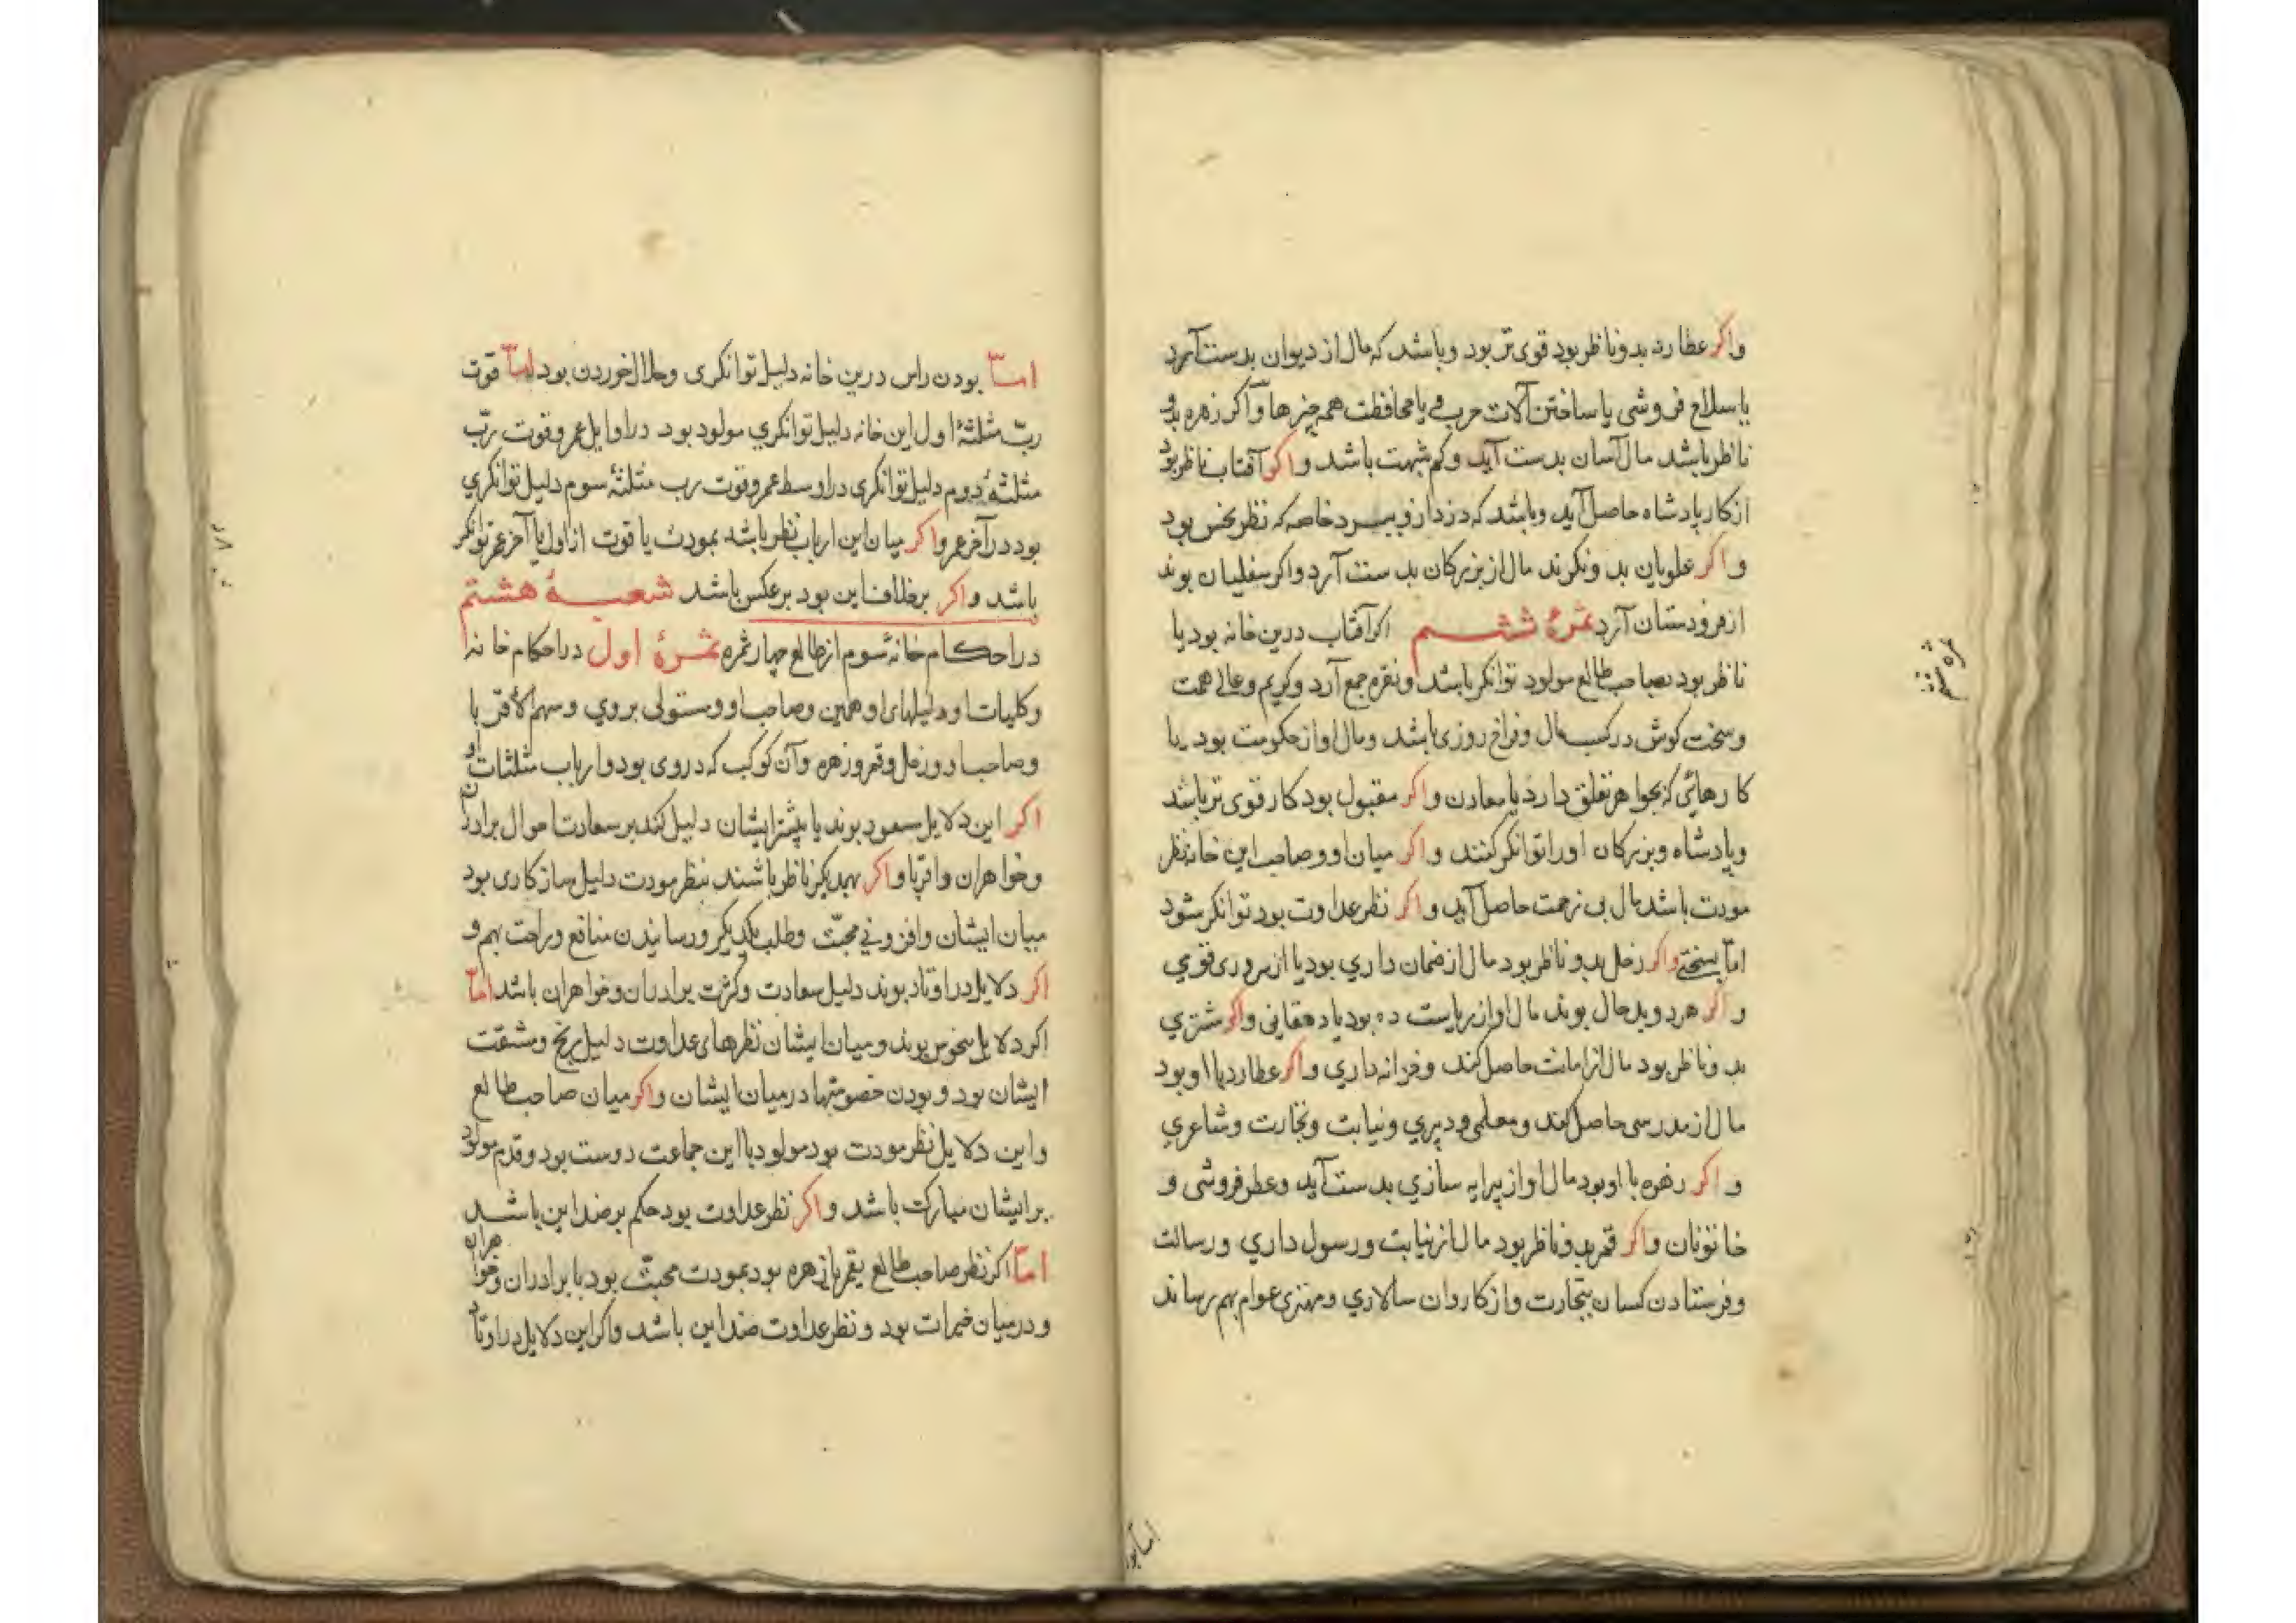 واکر عطارد بدو ناظر بود قوی تر بود و باشد که مال از دیوان بدست آرد
یا سلاح فروشی یا ساختن آلات حرب و یا محافظت همه چیزها و اکر زهره بدو
ناظر باشد مال آسان بدست آید و کم شبهت باشد و اکر آفتاب ناظر بود
از کار پادشاه حاصل آید و باشد که دزد از و ببرد خاصه که نظر نحس بود
و اکر علویان بدو نکرند مال از بزرکان بدست آرد و اکر سفلیان بوند
از فرودستان آرد ثمرهٔ ششم اکر آفتاب درین خانه بود یا
ناظر بود بصاحب طالع مولود توانکر باشد و نقره جمع آرد و کریم و عالی همت
و سخت کوش در کسب مال و فراخ روزی باشد و مال او از حکومت بود یا
کارهائی که بجواهر تعلق دارد یا معادن و اکر مقبول بود کار قوی تر باشد
و پادشاه و بزرکان او را توانکر کنند و اکر میان او و صاحب این خانه نظر
مودت باشد مال بی زحمت حاصل آید و اکر نظر عداوت بود توانکر شود
اما بسختی و اکر زحل بدو ناظر بود مال از ضمان داری بود یا از مروری قوی
و اکر هر دو بد حال بوند مال او از ریاست ده بود یا دهقانی و اکر مشتری
بدو ناظر بود مال از امانت حاصل کند و خزانه داری و اکر عطارد با او بود
مال از مدرسی حاصل کند و معلمی و دبیری و نیابت و تجارت و شاعری
و اکر زهره با او بود مال او از پیرایه سازی بدست آید و عطر فروشی و
خاتونان و اکر قمر بدو ناظر بود مال از نیابت و رسول داری و رسالت
و فرستادن کسان بتجارت و از کاروان سالاری و مهتری عوام بهم رساند
ثمره ششم
اما بود
اما بودن راس درین خانه دلیل توانکری و حلال خوردن بود اما قوت
ربّ مثلثهٔ اول این خانه دلیل توانکری مولود بود در اوایل عمر و قوت ربّ
مثلثهٔ دوم دلیل توانکری در اوسط عمر و قوت رب مثلثهٔ سوم دلیل توانکری
بود در آخر عمر و اکر میان این ارباب نظر باشد بمودت یا قوت از اول تا آخر عمر توانکر
باشد و اکر بخلاف این بود بر عکس باشد شعبهٔ هشتم
در احکام خانهٔ سوم از طالع چهار ثمره ثمرهٔ اول در احکام خانه
و کلیات او دلیلهای او همین و صاحب او و مستولی بروی و سهم الاقربا
و صاحب او و زحل و قمر و زهره و آن کوکب که در وی بود و ارباب مثلثات او
اکر این دلایل مسعود بوند یا بیشتر ایشان دلیل کند بر سعادت احوال برادران
و خواهران و اقربا و اکر بهدیکر ناظر باشند بنظر مودت دلیل سازکاری بود
میان ایشان و افزونی محبّت و طلب یکدیکر و رسانیدن منافع و راحت بهم و
اکر دلایل در اوتاد بوند دلیل سعادت و کثرت برادران و خواهران باشد اما
اکر دلایل منحوس بوند و میان ایشان نظرهای عداوت دلیل رنج و مشقت
ایشان بود و بودن خصومتها در میان ایشان و اکر میان صاحب طالع
و این دلایل نظر مودت بود مولود با این جماعت دوست بود و قدم مولود
بر ایشان مبارکت باشد و اکر نظر عداوت بود حکم بر ضد این باشد
اما اکر نظر صاحب طالع بقمر یا زهره بود بمودت محبّت بود با برادران و خواهران
و در میان خیرات بود و نظر عداوت ضد این باشد و اکر این دلایل در اوتاد